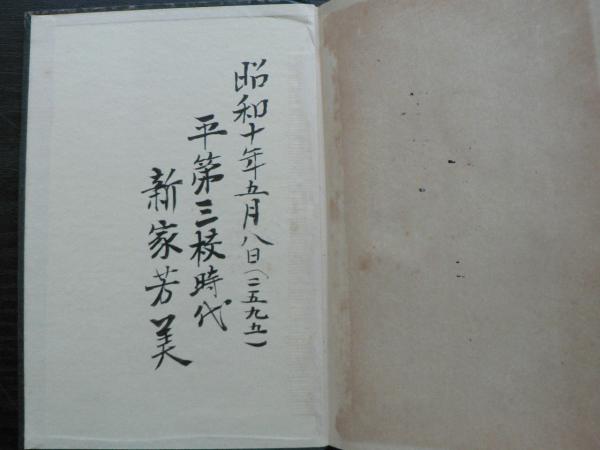 昭和十年五月八日(二五九五)
平第三校時代
新家芳美